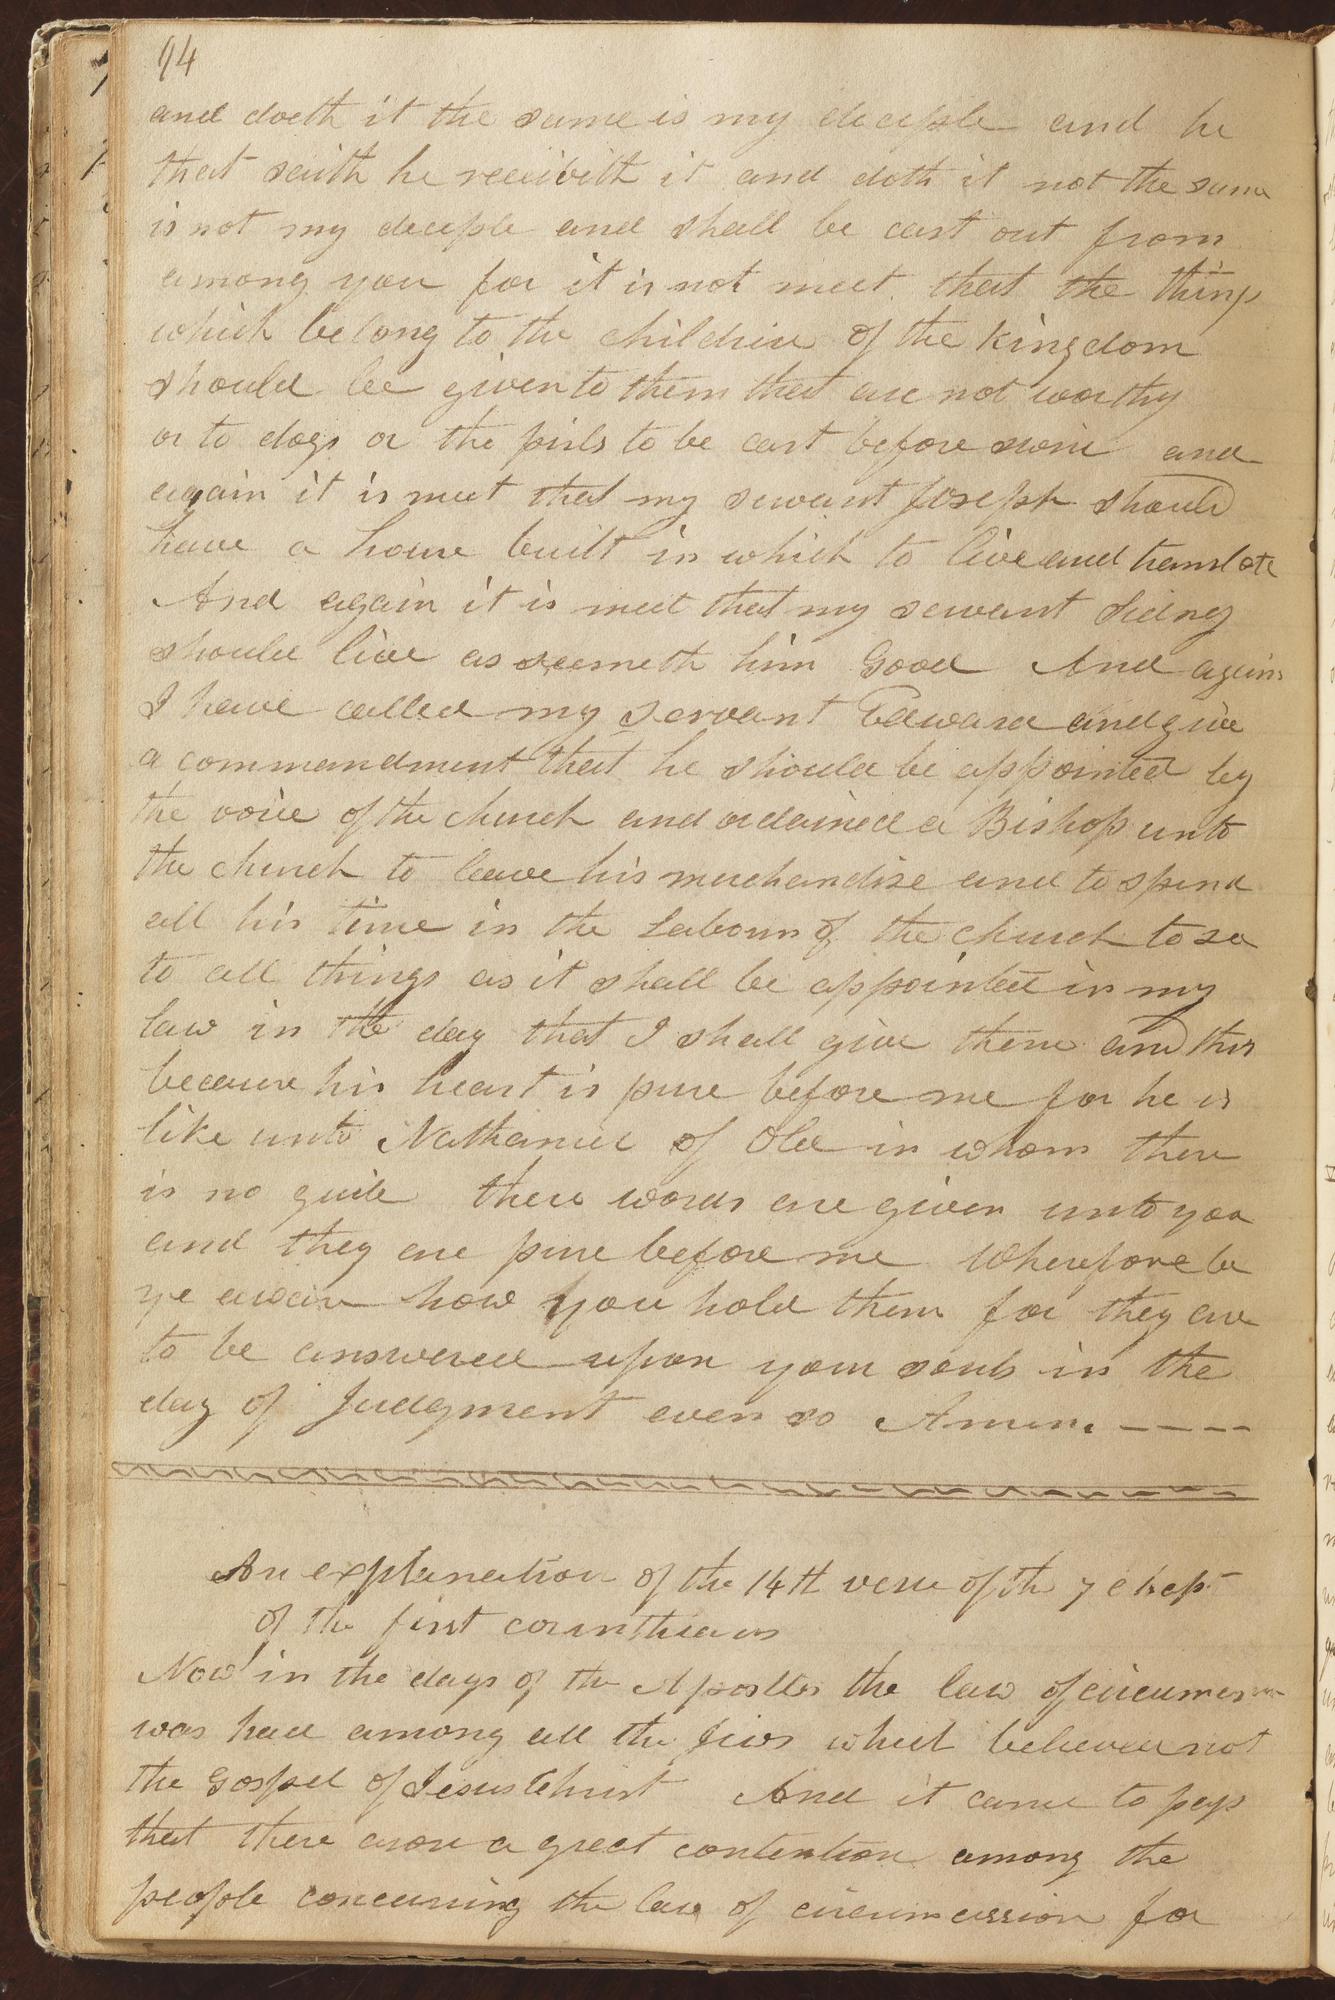 94
and doeth it the same is my deciple and he
that saith he receiveith it and doth it not the same
is not my deciple and shall be cast out from
among you for it is not meet that the things
which belong to the children of the kingdom
should be given to them that are not worthy
or to dogs or the pirls to be cast before swine and
again it is meet that my servant Joseph should
have a house built in which to live and translate
And again it is meet that my servant Sidney
should live as seemeth him Good And again
I have called my servant Edward and give
a commandment that he should be appointed by
the voice of the church and ordained a Bishop unto
the church to leave his merchandise and to spend
all his time in the Labours of the church to se
to all things as it shall be appointed in my
law in the day that I shall give them and this
because his heart is pure before me for he is
like unto Nathaniel of Old in whom there
is no guile these words are given unto you
and they are pure before me Wherefore be
ye aware how you hold them for they are
to be answered upon your souls in the
day of Judgment even so Amen. ----
An explanation of the 14th verse of the 7 chapt
of the first corinthians
Now in the days of the Apostles the law of
was had among all the Jews which believed not
the Gospel of Jesus Christ And it came to pass
that there arose a great contention among the
people concerning the law of circumcission for